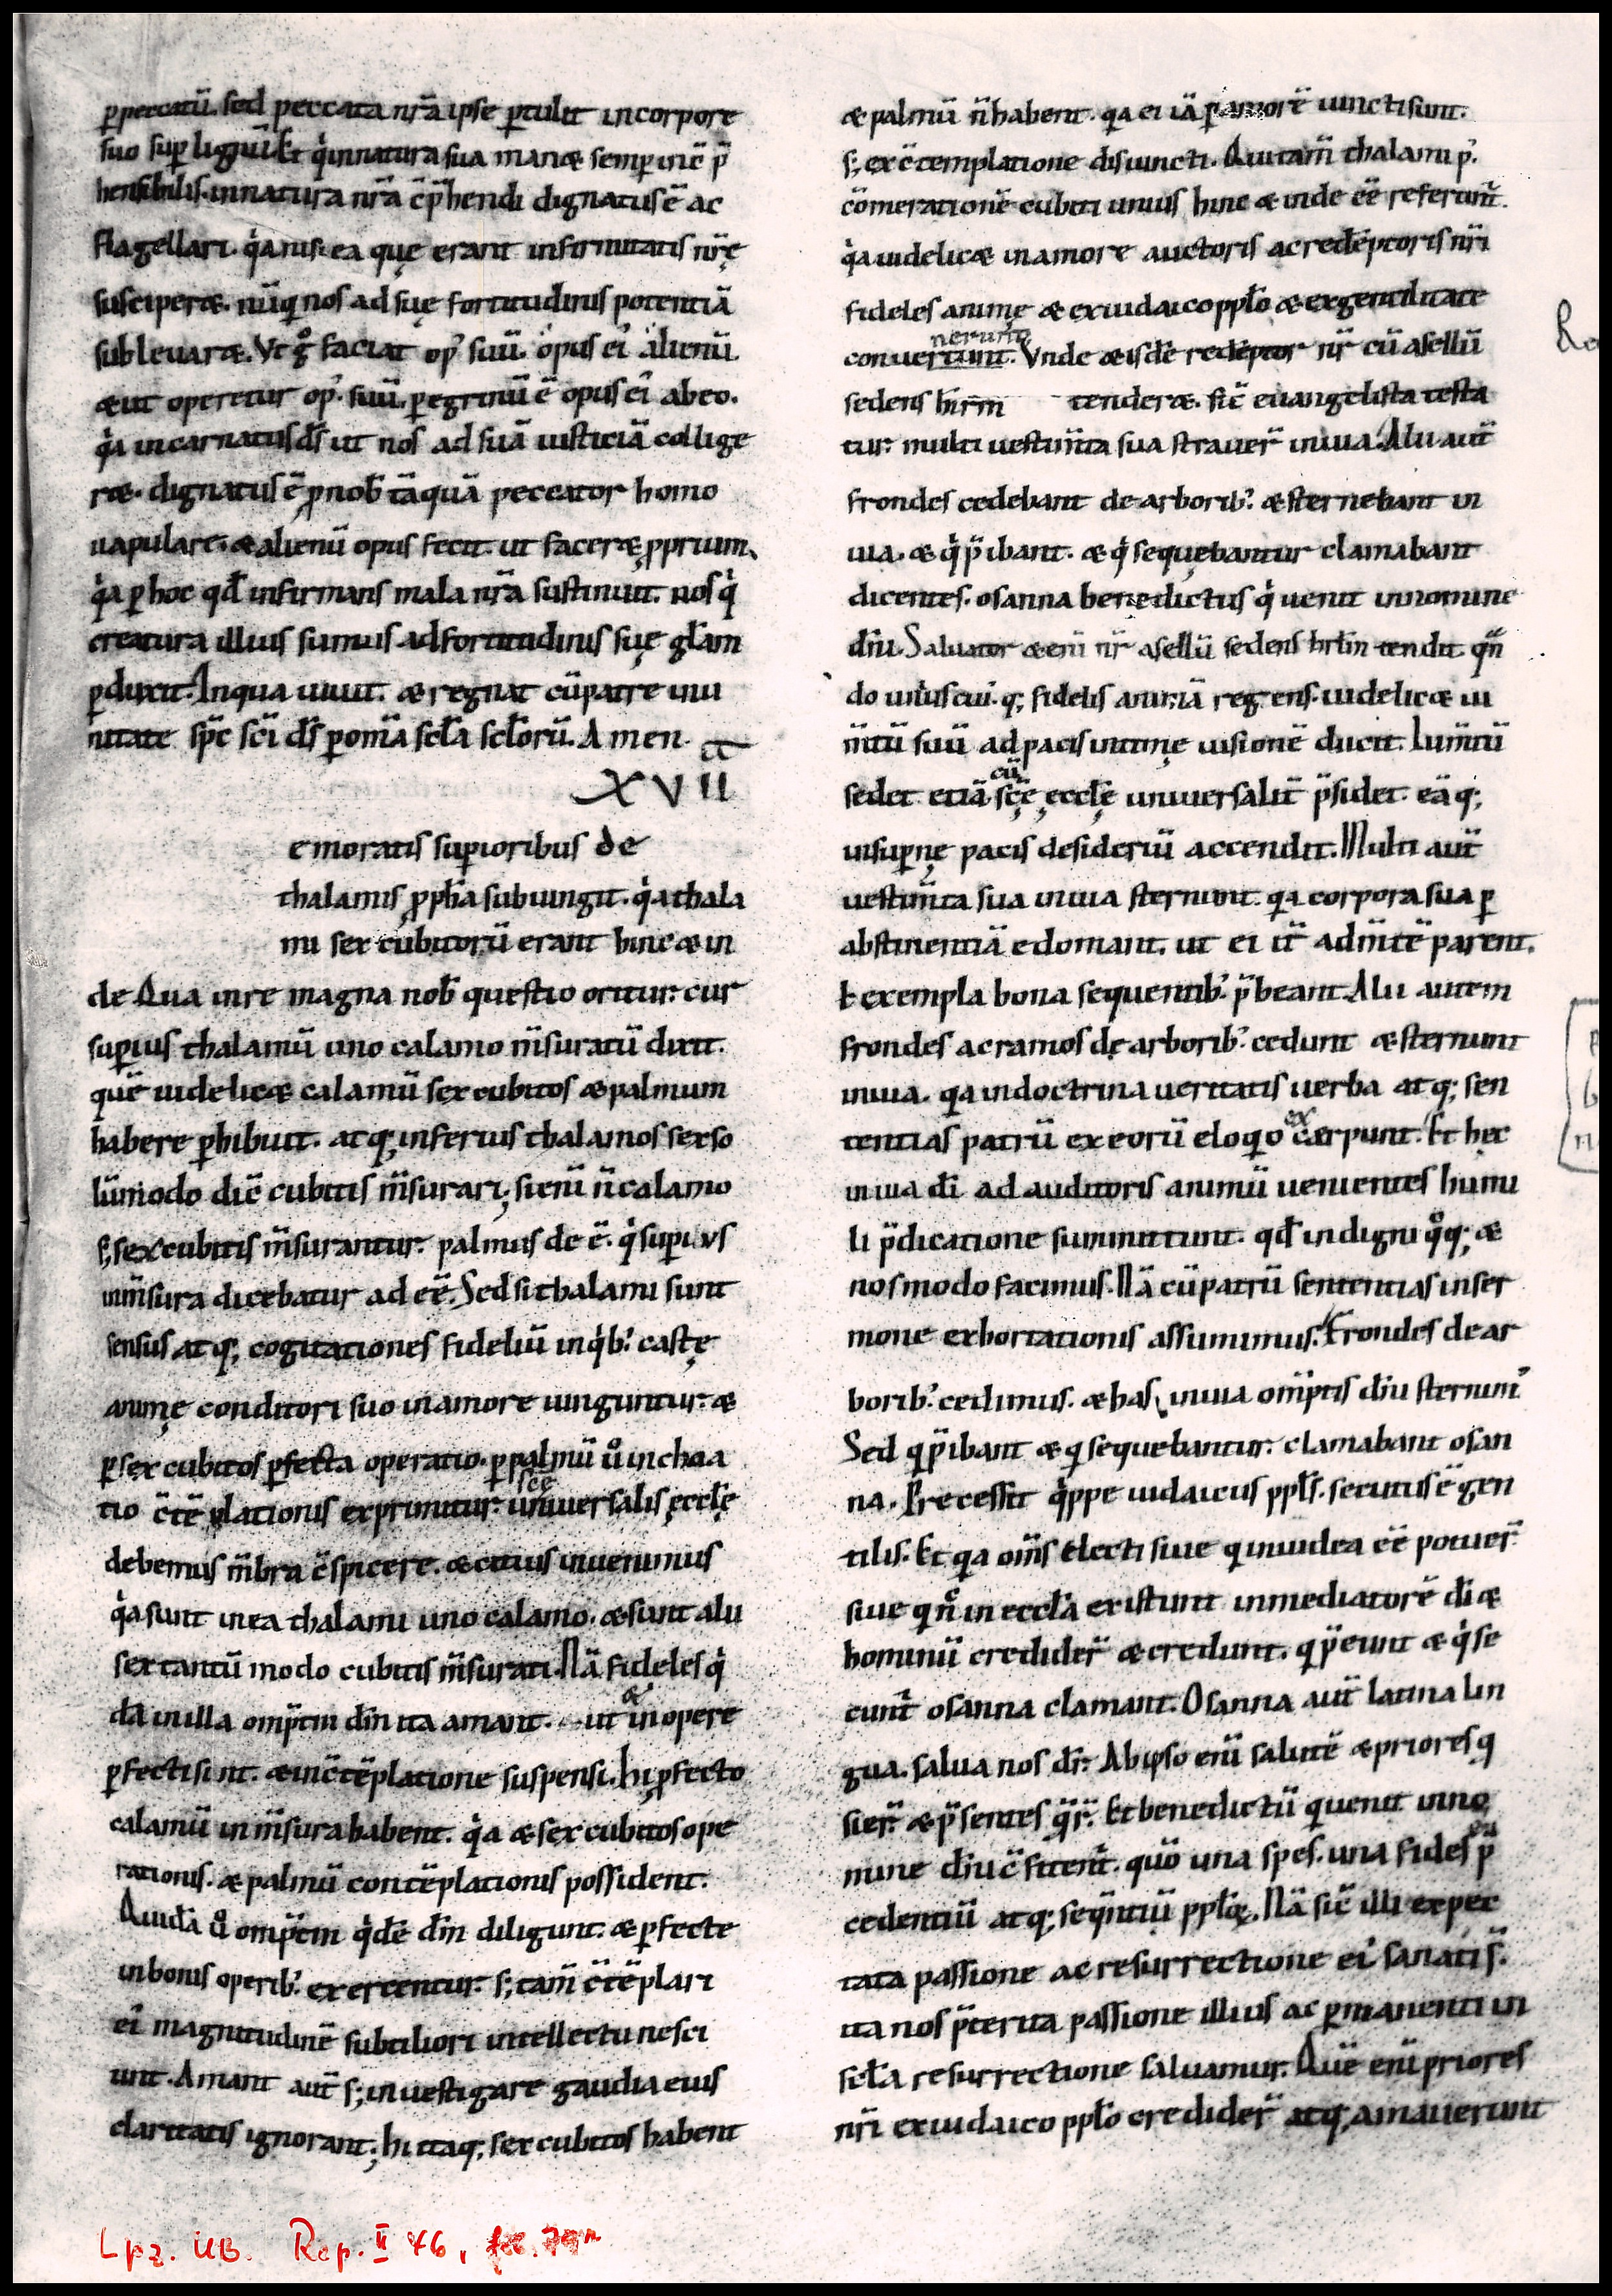 ꝑpeccatū. sed peccata nr̄a ipse ꝑtulit incorpore
suo suꝑ lignū. Et qͥ innatura sua manæ semꝑ inc̄ p̄
hensibilis. innatura nr̄a c̄p̄hendi dignatus ē ac
flagellari. qͥa nisi ea quę erant infirmitatis nr̄ę
susciperæ. nūq̄ nos ad suę fortitudinis potentiā
subleuaræ. Vt gͦ faciat op᾽ suū. opus ei᾽ alienū.
æut operetur op᾽ suū. ꝑegrinū ē opus ei᾽ abeo.
qͥa incarnatus ds̄ ut nos ad suā iusticiā collige
ræ. dignatus ē ꝓnob̄ tāquā peccator homo
uapulare. æalienū opus fecit. ut faceræ ꝓprium.
qͥa ꝑ hoc qd̄ infirmans mala nr̄a sustinuit. nos qͥ
creatura illius sumus adfortitudinis suę gl̄am
ꝑduxit. Inqua uiuit. æ regnat cūpatre inu
nitate sp̄c sc̄i ds̄ ꝑ om̄a scl̄a scl̄orū. Amen.
XVII a
emoratis suꝑioribus de
thalamis ꝓph̄a subiungit. qͥa thala
mi sex cubitorū erant hinc æ in
de Qua inre magna nob̄ questio oritur: cur
suꝑius thalamū uno calamo m̄suratū dixit.
quē uidelicæ calamū sex cubitos æpalmum
habere ꝑhibuit. atq; inferius thalamos sexso
lūmodo dic̄ cubitis m̄surari; si eni᾽ n̄calamo
s; sexcubitis m̄surantur: palmus de ē. qͥ suꝑius
inm̄sura dicebatur ad eē. Sed si thalami sunt
sensus atq; cogitationes fideliū inqͥb᾽ castę
animę conditori suo inamore iunguntur: æ
ꝑ sex cubitos ꝑfecta operatio. ꝑ palmū uͦ inchoa
tio c̄tēplationis exprimitur: scę uniuersalis ęccl̄ę
debemus m̄bra c̄spicere. æ citius inuenimus
qͥa sunt inea thalami uno calamo. æ sunt alii
sex tantū modo cubitis m̄surati. Nā fideles qͥ
dā inilla omp̄tm̄ dn̄m ita amant. ut æ inopere
ꝑfecti sint. æinc̄tēplatione suspensi. hi ꝓfecto
calamū in m̄sura habent. qͥa æ sex cubitos ope
rationis. æ palmū contēplationis possident.
Quidā uͦ omp̄tm̄ qͥdē dn̄m diligunt: æ ꝑfecte
inbonis operib᾽ exercentur. s; tam̄ c̄tēplari
ei᾽ magnitudinē subtiliori intellectu nesci
unt. Amant aut̄ s; inuestigare gaudia eius
claritatis ignorant; hi itaq; sex cubitos habent
æ palmū n̄habent. qa ei iā ꝑ amorē iuncti sunt.
s; ex c̄templatione disiuncti. Quitam̄ thalami p᾽.
cōmerationē cubiti unius hinc æ inde eē referunt᾽.
qͥa uidelicæ inamore auctoris acredēptoris nr̄i
fideles animę æ exiudaico ppl̄o æ exgentilitate
conuerterunt. nerunt Vnde æ isdē redēptor nr̄ cū asellū
sedens hirm̄ tenderæ. sic̄ euangelista testa
tur: multi uestim̄ta sua strauer̄ inuia. Alii aut̄
frondes cedebant de arborib᾽. æ sternebant in
uia. æ qͥ p̄ibant. æ qͥ sequebantur clamabant
dicentes. osanna benedictus qͥ uenit innomine
dn̄i. Saluator æeni nr̄ asellū sedens hrlm̄ tendit. qn̄
do uniuscui᾽q; fidelis animā regens. uidelicæ iu
m̄tū suū ad pacis intimę uisionē ducit. Ium̄tū
sedet etiā cū scę̄ ęccl̄ę uniuersalit̄ p̄sidet. eāq;
insuꝑnę pacis desideriū accendit. Multi aut̄
uestim̄ta sua inuia sternunt. qa corpora sua ꝑ
abstinentiā edomant. ut ei it̄ adm̄tē parent.
ł exempla bona sequentib᾽ p̄beant. Alii autem
frondes ac ramos dęarborib᾽ cedunt æ sternunt
inuia. qa indoctrina ueritatis uerba atq; sen
tentias patrū ex eorū eloqͥo excerpunt. Et hęc
inuia dī ad auditoris animū uenientes humi
li p̄dicatione summittunt. qd̄ indigni qͦq; æ
nos modo facimus. Nā cū patrū sententias inser
mone exhortationis assumimus. Frondes de ar
borib᾽ cedimus. æ has inuia omp̄tis dn̄i sternim᾽
Sed q p̄ibant æ q sequebantur: clamabant osan
na. Precessit qͥppe iudaicus ppl̄s. secutus ē gen
tilis. Et qa om̄s electi siue q iniudea eē potuer̄
siue q nc̄ in eccl̄a existunt inmediatorē dī æ
hominū credider̄ æ credunt. q p̄eunt æ qͥ se
cunt᾽ osanna clamant. Osanna aut̄ latina lin
gua. salua nos dr̄. Abipso eni᾽ salutē æ priores q
sier̄ æ p̄sentes q̄r̄. Et benedictū q uenit inno
mine dn̄i c̄fitent᾽. quō una spes. una fides p̄
cedentiū atq; seqn̄tiū ppl̄oꝝ. Nā sic̄ illi expec
tata passione ac resurrectione ei᾽ sanati s̄.
ita nos p̄terita passione illius ac ꝑmanenti in
scl̄a resurrectione saluamur. Quē eni᾽ priores
nr̄i exiudaico ppl̄o credider̄ atq; amauerunt
Lpz. UB. Rep. II 46, fol. 79